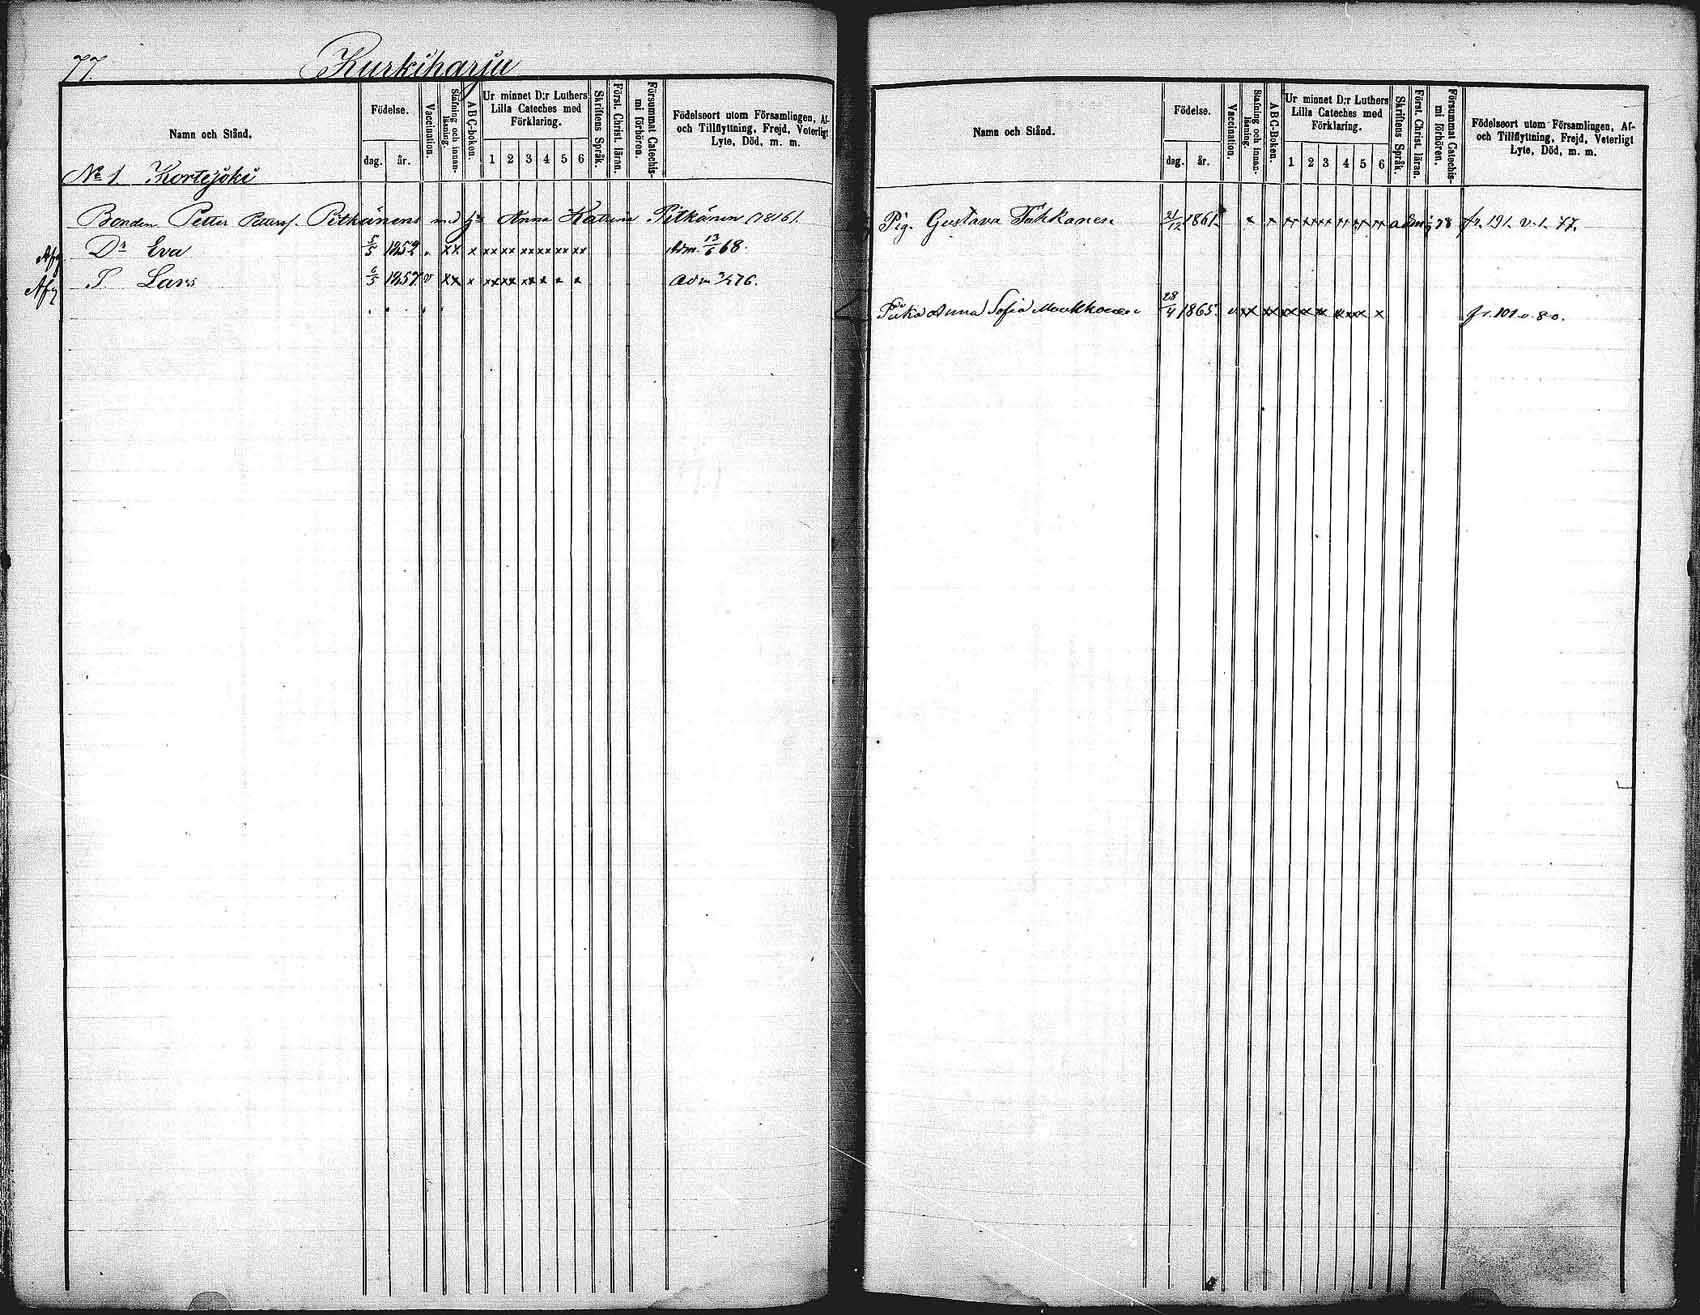 77
Kurkiharju
Namn och Stånd.
Födelse.
dag. år.
Vaccination.
Stafning och innan-läsning.
ABC-boken.
Ur minnet D:r Luthers
Lilla Cateches med
Förklaring.
1 2 3 4 5 6
Skriftens Språk.
Först. Christ. läran.
Försummat Catechis-
mi förhören.
Födelseort utom Församlingen, Af-
och Tillflyttning, Frejd, Veterligt
Lyte, Död, m. m.
No 1. Kortejöki
Bonden Petter Petterss. Pitkänens med h:u Anna Katrina Pitkänen (1816).
Dr Eva 5/5 1852 " xx x xx xx xx xx xx xx Adm. 13/6 68.
S. Lars 6/5 1857 v xx x xx xx xx x x x Adm 76.
Namn och Stånd.
Födelse.
dag. år.
Vaccination.
Stafning och innan-läsning.
ABC-Boken.
Ur minnet D:r Luthers
Lilla Cateches med
Förklaring.
1 2 3 4 5 6
Skriftens Språk.
Först. Christ. läran.
Försummat Catechis-
mi förhören.
Födelseort utom Församlingen, Af-
och Tillflyttning, Frejd, Veterligt
Lyte, Död, m. m.
Pig. Gustava 21/12 1861 x x xx xx xx xx xx xx adm 78 fr. 191 v. 1. 77.
Anna Sofia 28/4 1865 v xx xx xx xx xx xx xx x fr. 101 v. 80.